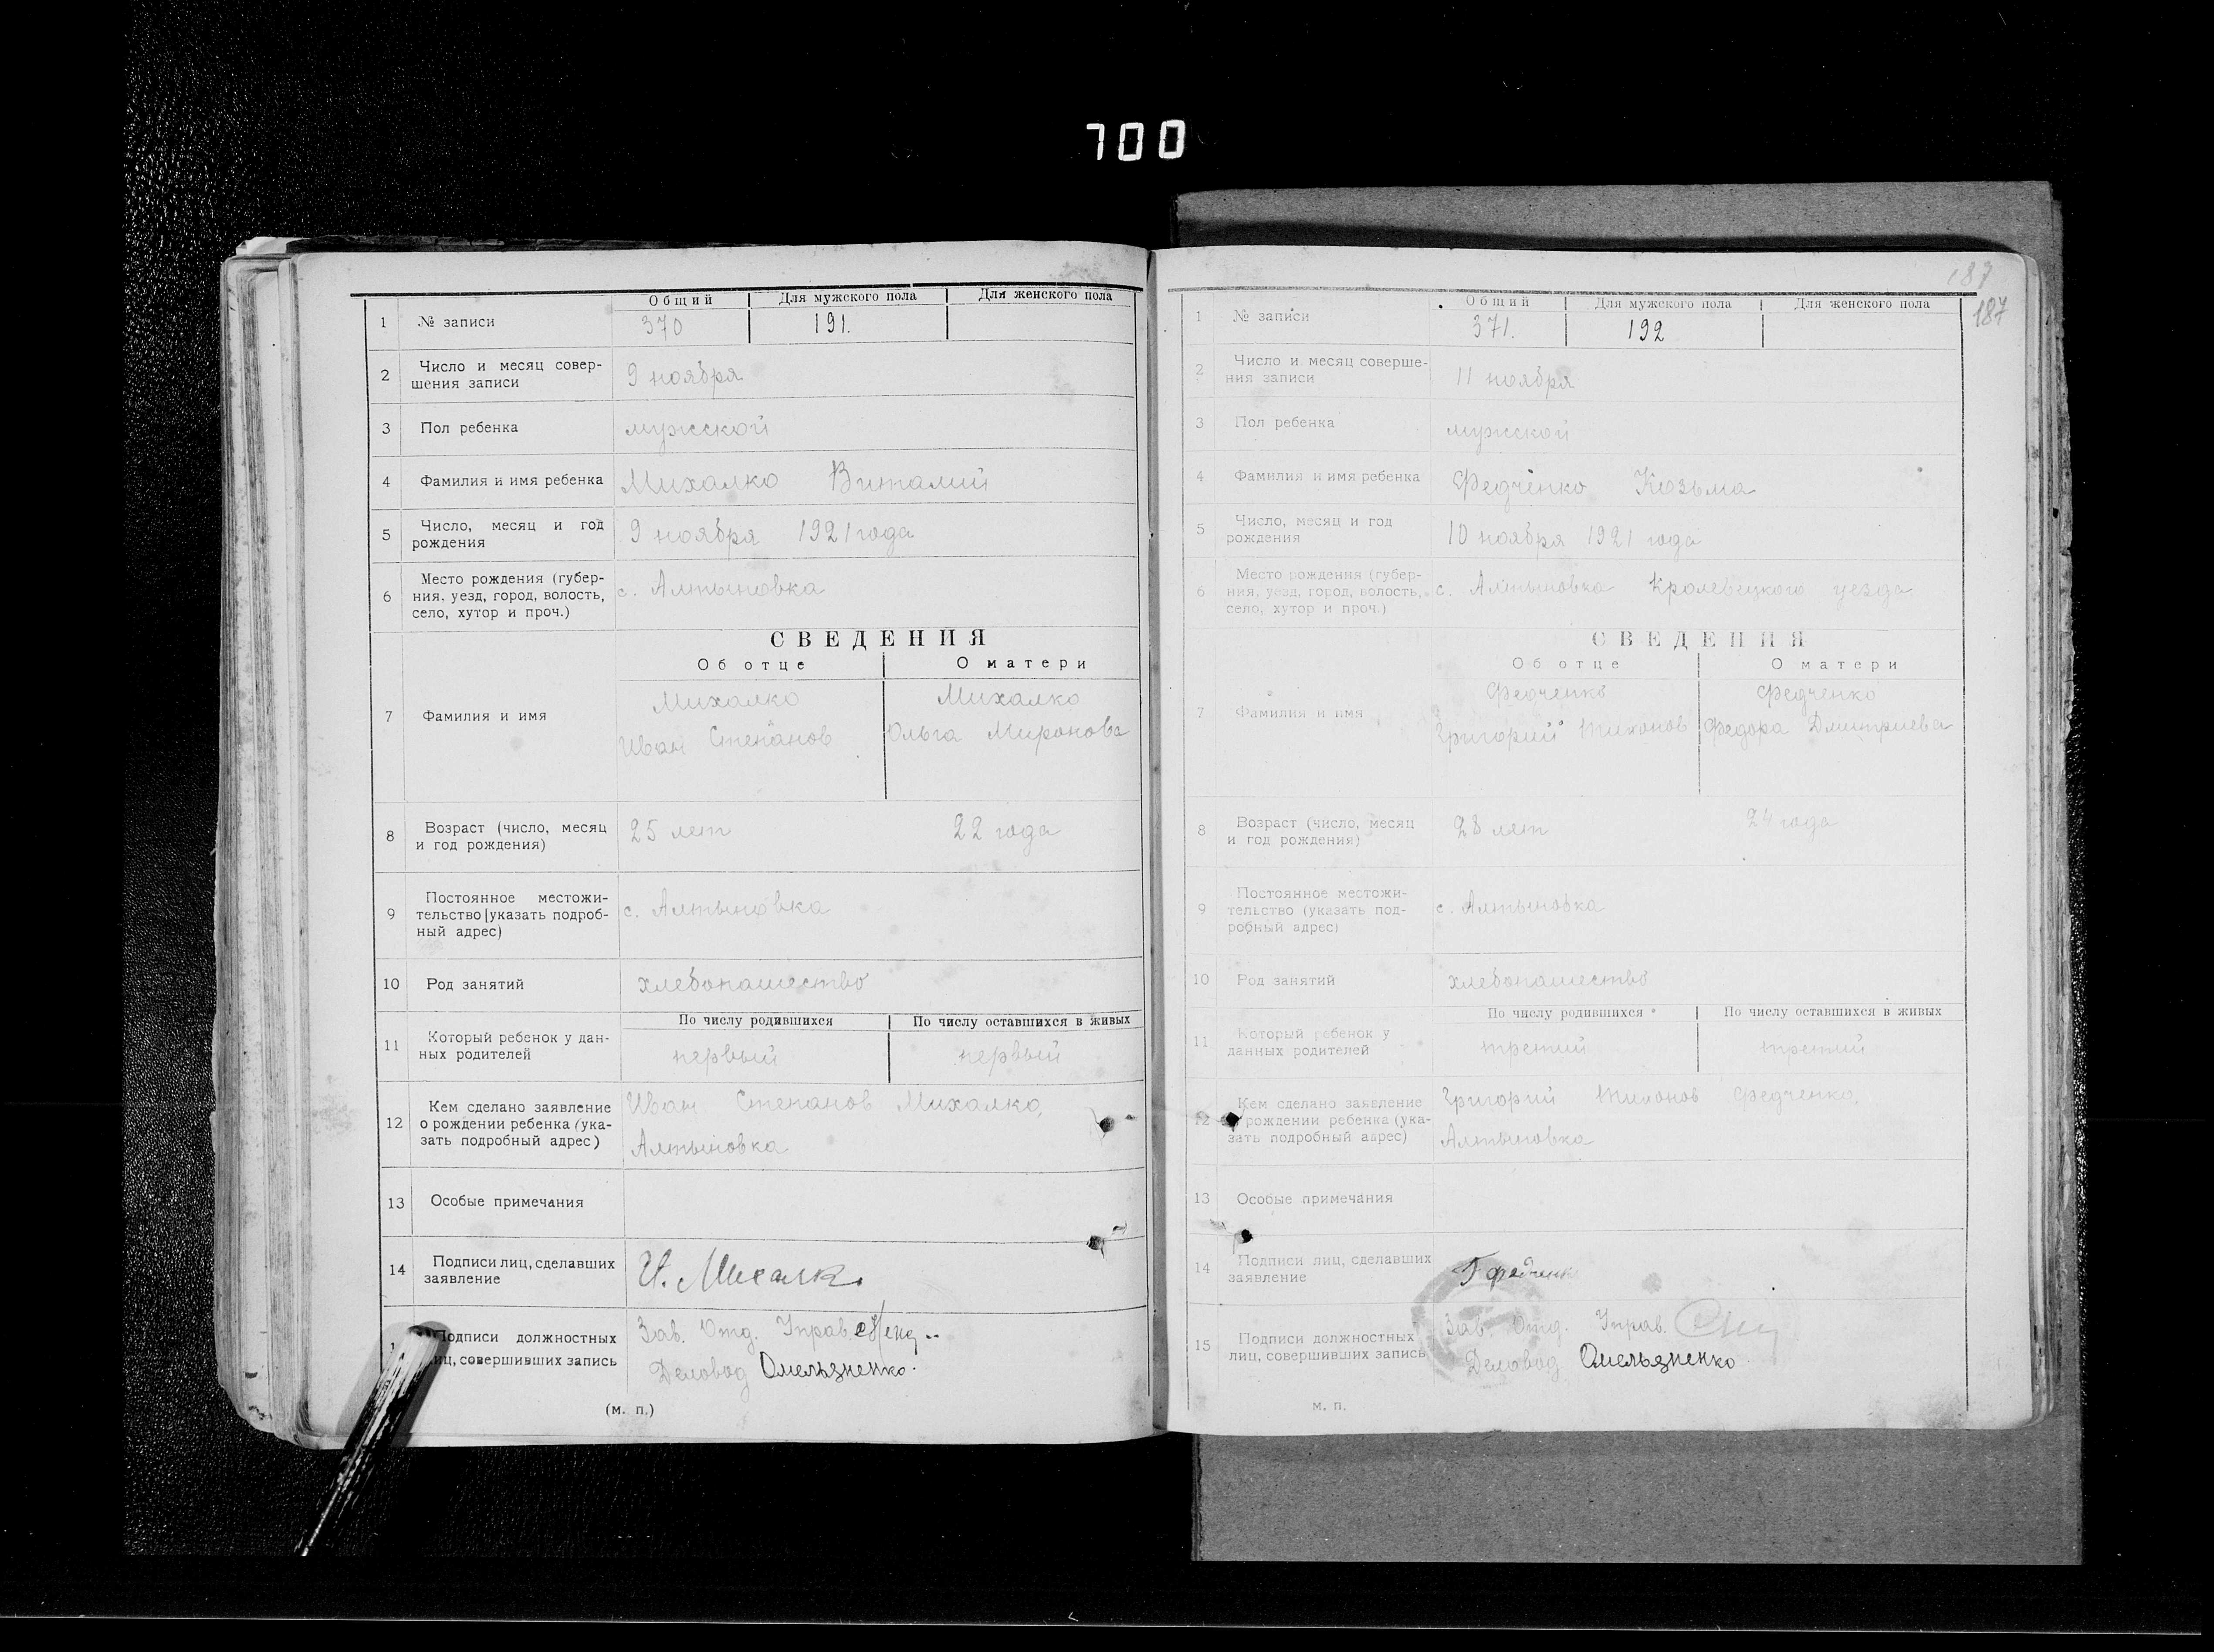 700
Общий Для мужского пола Для женского пола
1 № записи 370 191.
2 Число и месяц совер-
шения записи 9 ноября
3 Пол ребенка мужской
4 Фамилия и имя ребенка Михалко Виталий
5 Число, месяц и год
рождения 9 ноября 1921 года
6 Место рождения (губер-
ния, уезд, город, волость,
село, хутор и проч.) с. Алтыновка
СВЕДЕНИЯ
Об отце О матери
7 Фамилия и имя
Михалко Михалко
Иван Степанов Ольга Миронова
8 Возраст (число, месяц
и год рождения) 25 лет 22 года
9 Постоянное местожи-
тельство [указать подроб-
ный адрес) с. Алтыновка
10 Род занятий хлебопашество
По числу родившихся По числу оставшихся в живых
11 Который ребенок у дан-
ных родителей первый первый
12 Кем сделано заявление
о рождении ребенка (ука-
зать подробный адрес)
Иван Степанов Михалко,
Алтыновка
13 Особые примечания
14 Подписи лиц, сделавших
заявление И. Михалк
Подписи должностных
лиц, совершивших запись
Зав. Отд. Управ.
Деловод Омельяненко.
(м. п.)
187
187
Общий Для мужского пола Для женского пола
1 № записи 371. 192
2 Число и месяц соверше-
ния записи 11 ноября
3 Пол ребенка мужской
4 Фамилия и имя ребенка Федченко Козьма
5 Число, месяц и год
рождения 10 ноября 1921 года
6 Место рождения (губер-
ния, уезд, город, волость,
село, хутор и проч.) с. Алтыновка Кролевецкого уезда
СВЕДЕНИЯ
Об отце О матери
7 Фамилия и имя
Федченко Федченко
Григорий Тихонов Федора Дмитриева
8 Возраст (число, месяц
и год рождения) 28 лет 24 года
9 Постоянное местожи-
тельство (указать под-
робный адрес) с. Алтыновка
10 Род занятий хлебопашество
По числу родившихся По числу оставшихся в живых
11 Который ребенок у
данных родителей третий третий
12 Кем сделано заявление
о рождении ребенка (ука-
зать подробный адрес)
Григорий Тихонов Федченко,
Алтыновка
13 Особые примечания
14 Подписи лиц, сделавших
заявление Г Федченк
15 Подписи должностных
лиц, совершивших запись
Зав. Отд. Управ.
Деловод Омельяненко.
м. п.